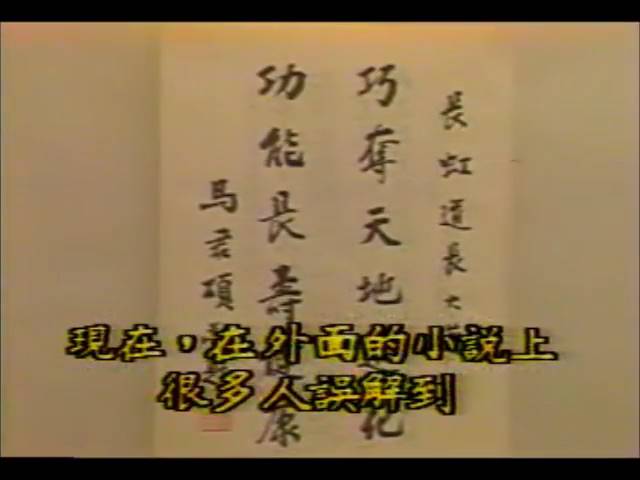 長虹道長大
巧奪天地化
功能長壽康
馬君項
現在，在外面的小說上
很多人誤解到